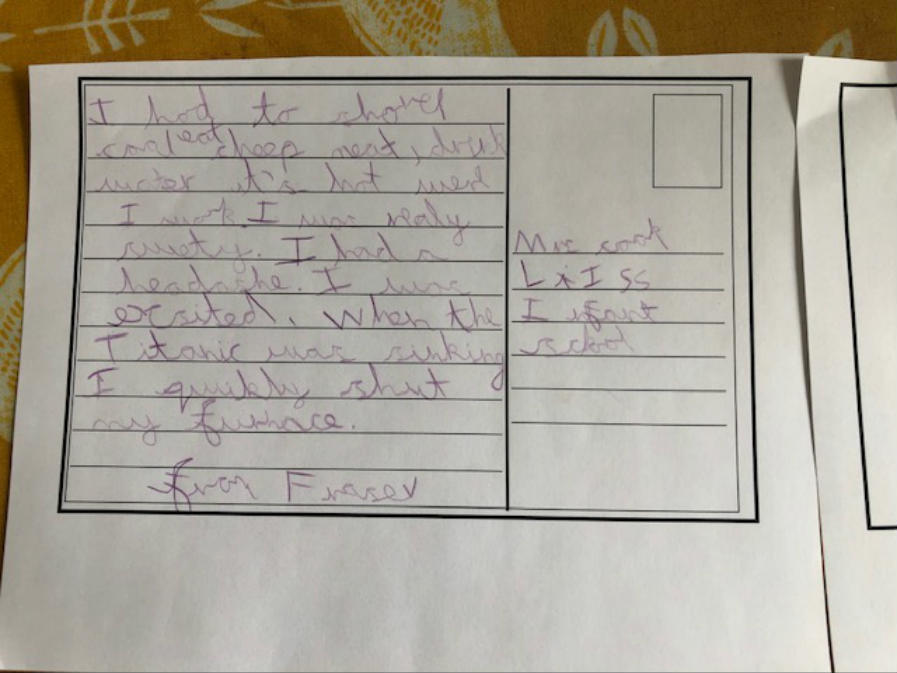 I had to shovel
coal eat cheep meat, drink
water it's hot werd
I work. I was realy
swety. I had a
headache. I was
excsited. When the
Titanic was sinking
I quikly shut
my furnace.
from Fraser
Mrs cook
LiISS
Infant
school